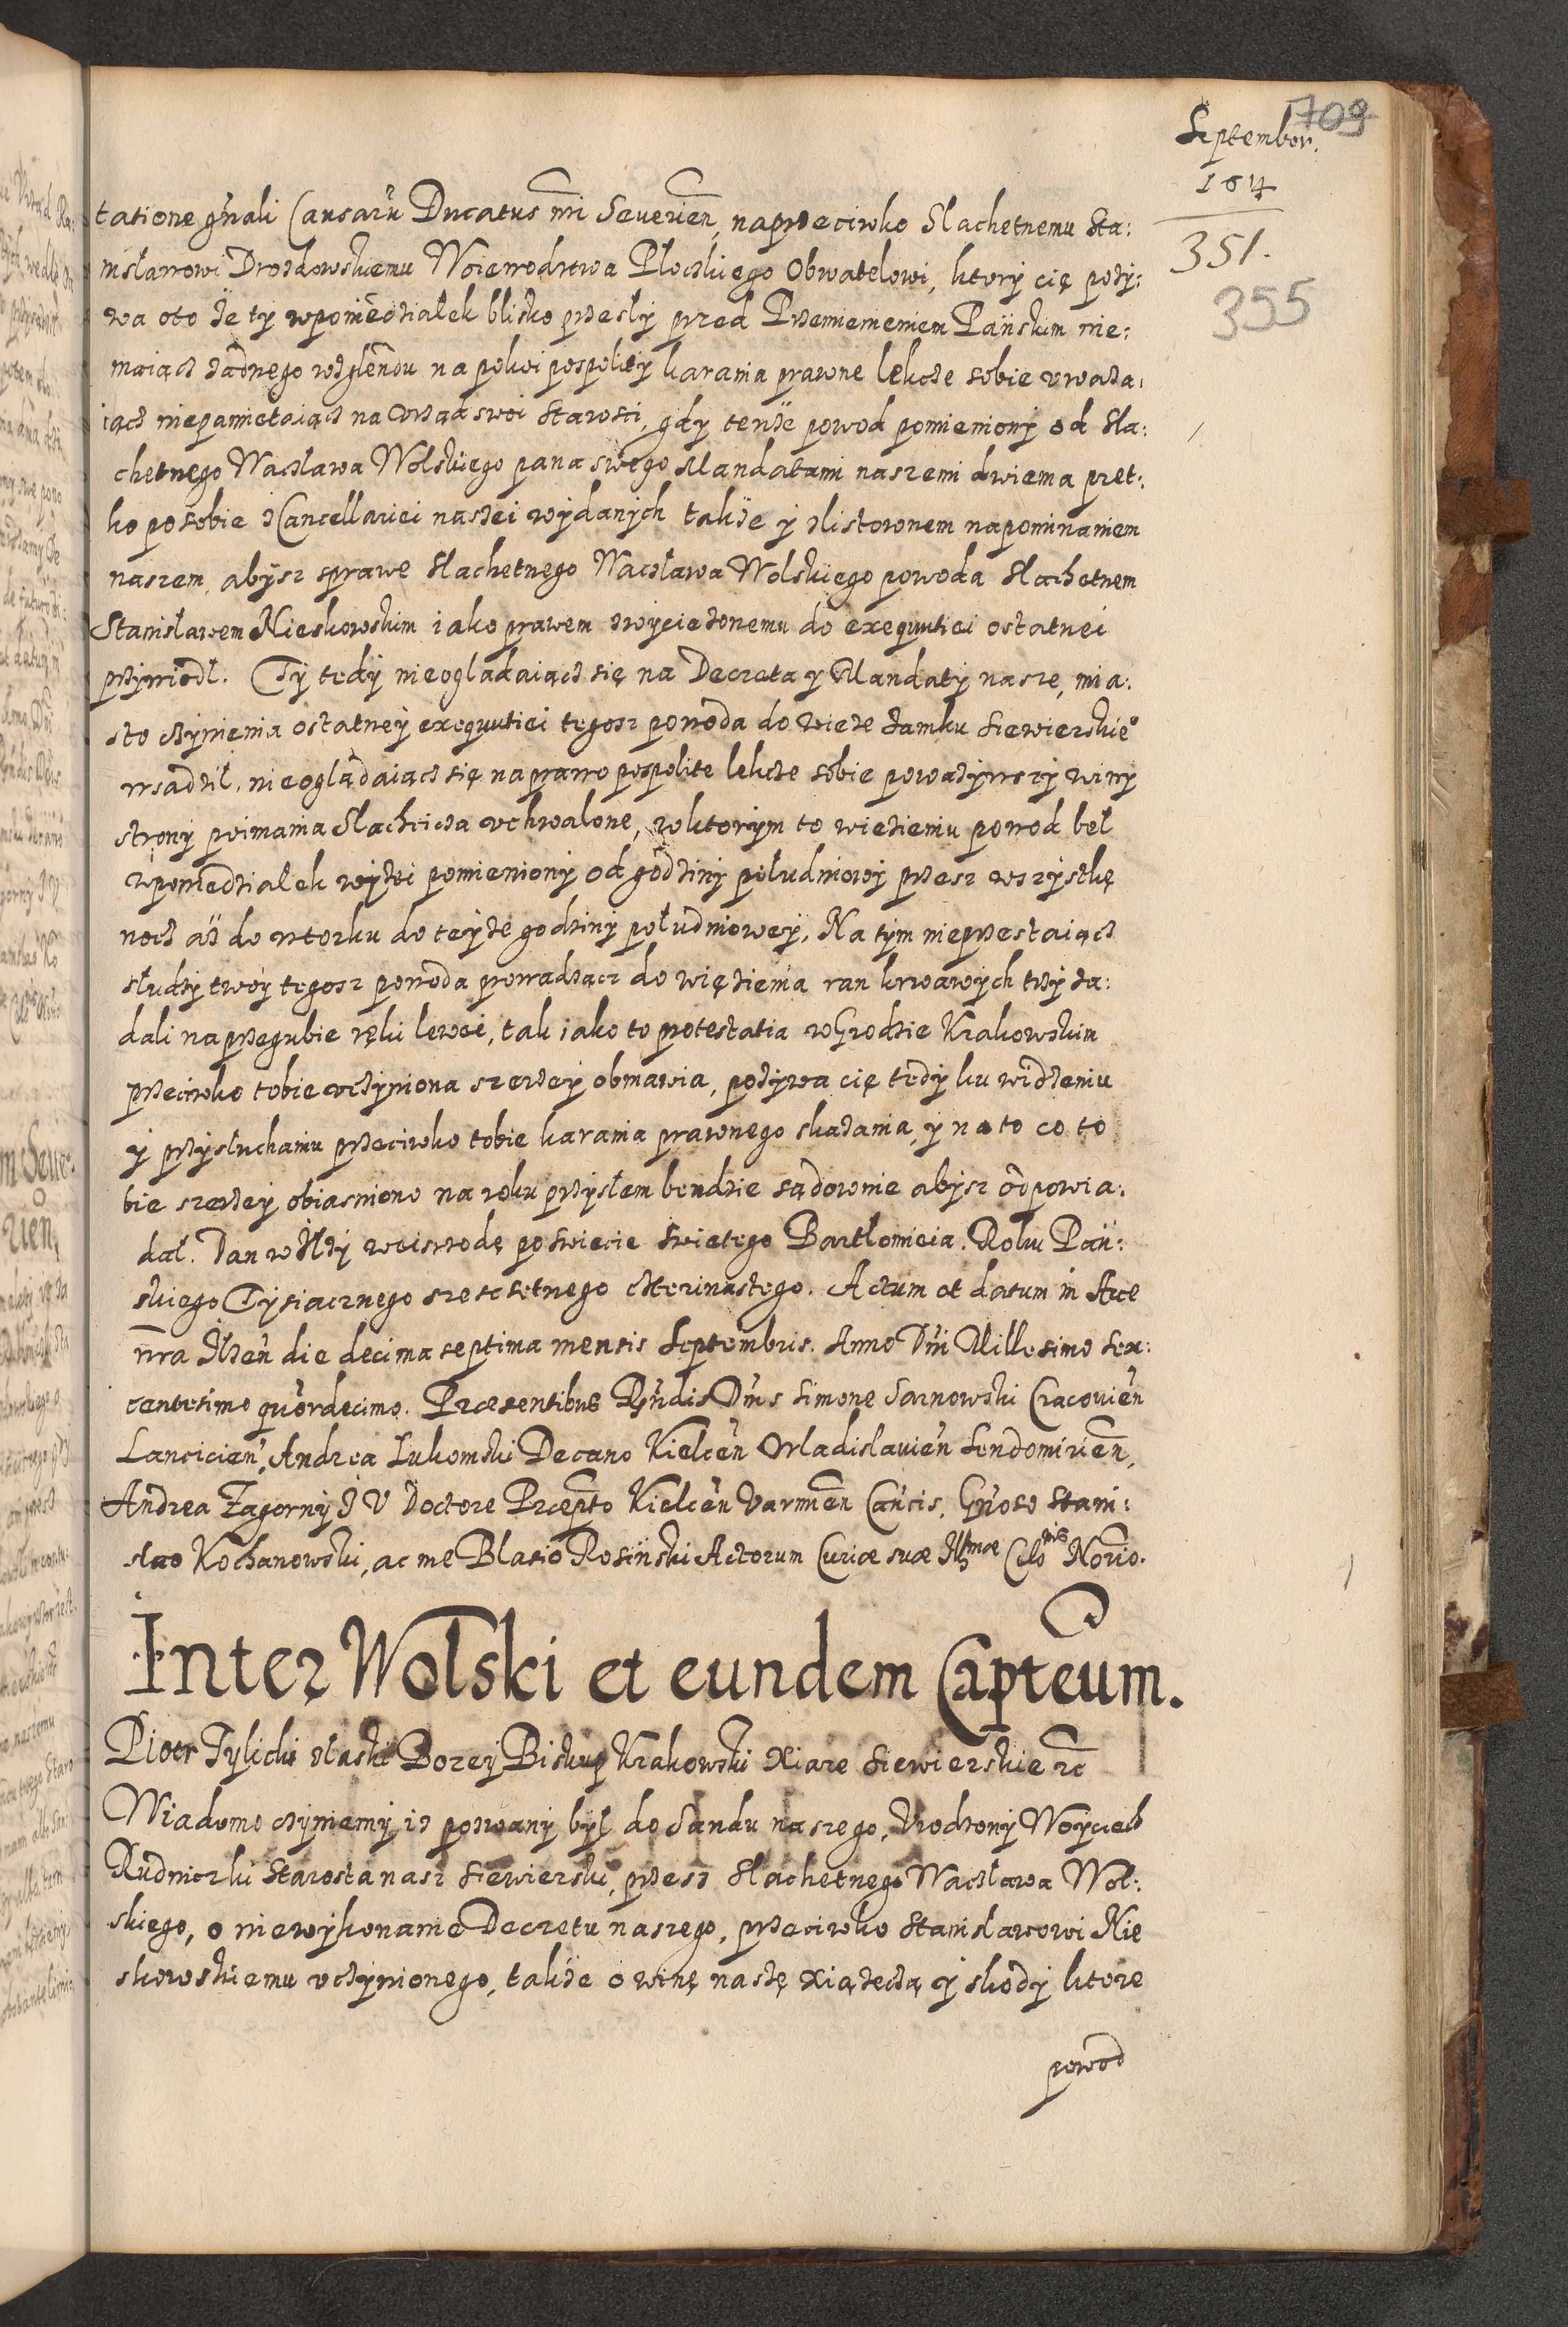 709
September.
1614
351.
355
tatione gńrali Causarũ Ducatus nri Seuerien̄, naprzeciwko Slachetnemu Sta:
nislawowi Drozdowskiemu Woiewodztwa Plockiego Obwatelowi, ktory cię pozy:
wa oto że ty wponiedzialek blisko przesly przed Przemienieniem Pańskim nie:
maiącz żadnego wzglendu na pokoi pospolity karania prawne lekcze sobie vwaza:
iącz niepamietaiącz na Vrząd swoi Starosti, gdy tenże powod pomieniony od Sla:
chetnego Waczlawa Wolskiego pana swego Mandatami naszemi dwiema pret:
ko posobie zCancellariei naszei wydanych także y zlistownem napominaniem
naszem, abysz sprawe Slachetnego Waczlawa Wolskiego powoda Slachetnem
Stanislawem Nieskowskim iako prawem zwyciezonemu do exequutiei ostatnei
przywiodl. Ty tedy nieogladaiącz się na Decreta y Mandaty nasze, mia:
sto czynienia ostatney exequutiei tegosz powoda do wieze zamku Siewierskie°
wsadzil, nieoglądaiącz się naprawo pospolite lekcze sobie powazywszy winy
strony poimania Slachcicza vchwalone, wktorym to wiezieniu powod bel
wponiedzialek wyżei pomieniony od godziny poludniowy przesz wszystkę
nocz aż do wtorku do teyze godziny poludniowey, Na tym nieprzestaiącz
sludzy twoy tegosz powoda prowadzącz do więzienia ran krwawych trzy za:
dali naprzegubie ręki lewei, tak iako to protestatia wGrodzie Krakowskim
przeciwko tobie vczyniona szerzey obmawia, pozywa cię tedy ku widzeniu
y przysluchaniu przeciwko tobie karania prawnego skazania, y na to co to
bie szerzey obiasniono na roku przyslem bendzie sądownie abysz odpowia:
dal. Dan w Ilzy weiszrodę poswiecie świetego Bartlomieia. Roku Pań:
skiego Tysiacznego szescsetnego czterinastego. Actum et datum in Arce
nr̄a Ilzen̄ die decima septima mensis Septembris. Anno Dn̄i Millesimo sex:
centesimo quordecimo. Præsentibus Rn̄dis Dn̄s Simone Sarnowski Cracouien̄
Lancicien̄, Andrea Lukomski Decano Kielcen̄ Vladislauien̄ Sendomirien̄,
Andrea Zagorny I V Doctore Præpto Kielcen̄ Varmien̄ Can̄cis, Gn̄oso Stani:
slao Kochanowski, ac me Blasio Rosiński Actorum Curiæ suæ Illmæ Celnis Norio.
Inter Wolski et eundem Capteum.
Piotr Tylicki zlaski Bozey Biskup Krakowski Xiaze Siewierskie rc
Wiadomo czyniemy iz pozwany był do Sandu naszego, Vrodzony Woyciech
Rudniczki Starosta nasz Siewierski, przesz Slachetnego Waczlawa Wol:
skiego, o niewykonanie Decretu naszego, przeciwko Stanislawowi Nie
skowskiemu vczynionego, także o winę naszę xiążeczą y skody ktore
powod